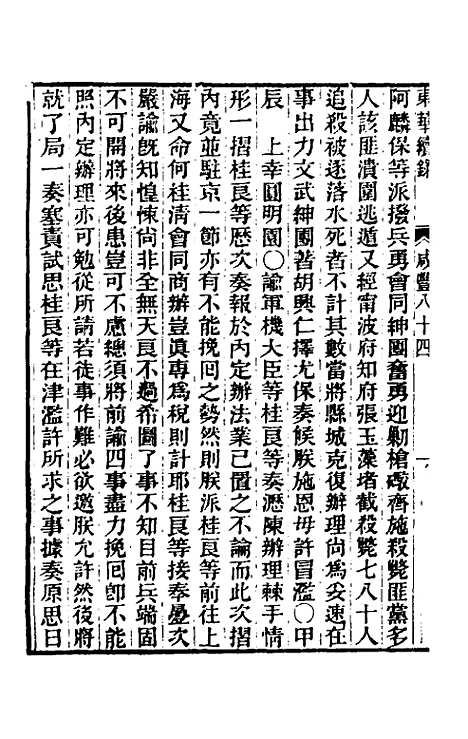 東華續錄　咸豐八十四　一
阿麟保等派撥兵勇會同紳團奮勇迎勦槍礮齊施殺斃匪黨多
人該匪潰圍逃遁又經甯波府知府張玉藻堵截殺斃七八十人
追殺被逐落水死者不計其數當將縣城克復辦理尚爲妥速在
事出力文武紳團著胡興仁擇尤保奏候朕施恩毋許冒濫〇甲
辰　上幸圓明園〇諭軍機大臣等桂良等奏瀝陳辦理棘手情
形一摺桂良等歷次奏報於內定辦法業已置之不論而此次摺
內竟並駐京一節亦有不能挽回之勢然則朕派桂良等前往上
海又命何桂清會同商辦豈眞專爲稅則計耶桂良等接奉曡次
嚴諭旣知惶悚尚非全無天良不過希圖了事不知目前兵端固
不可開將來後患豈可不慮總須將前諭四事盡力挽回卽不能
照內定辦理亦可勉從所請若徒事作難必欲邀朕允許然後將
就了局一奏塞責試思桂良等在津濫許所求之事據奏原思日